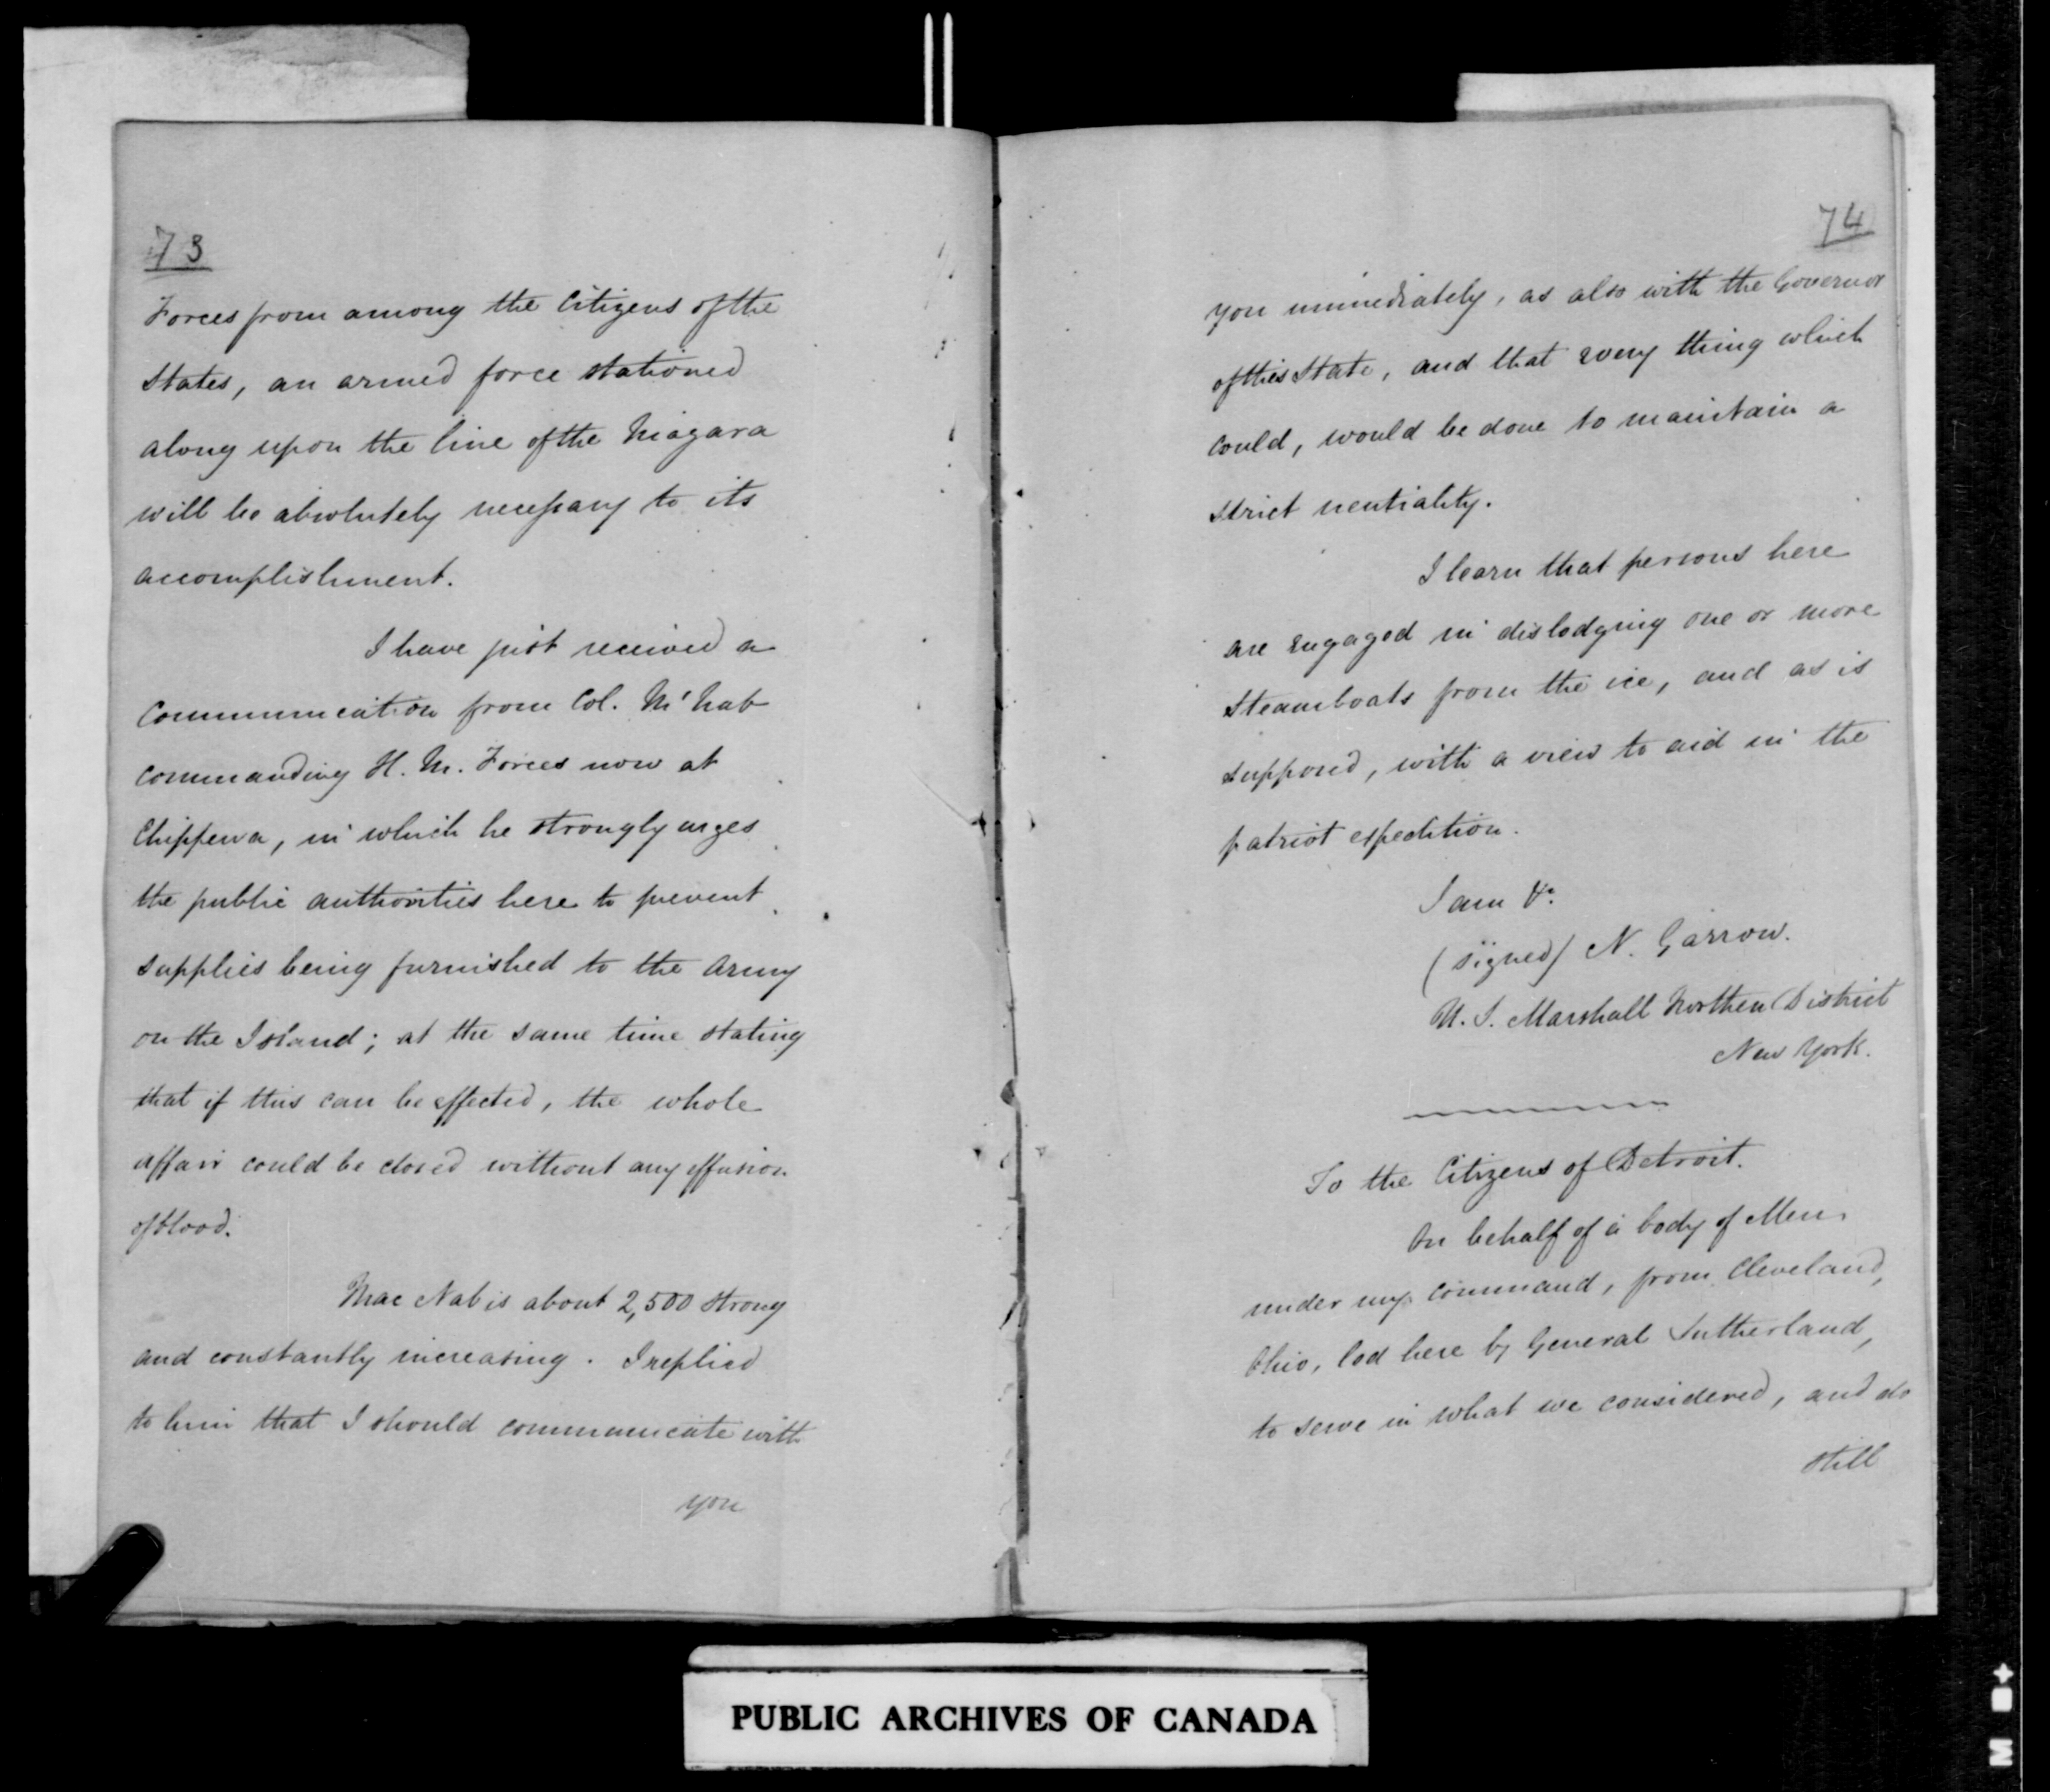 73
Forces from among the Citizens of the
States, an armed force stationed
along upon the line of the Niagara
will be absolutely necessary to its
accomplishment.
I have just received a
Communication from Col. M'Nab
commanding H. M. Forces now at
Chippewa, in which he strongly urges
the public authorities here to prevent
supplies being furnished to the Army
on the Island; at the same time stating
that if this can be effected, the whole
affair could be closed without any effusion
of blood.
Mac Nab is about 2,500 strong
and constantly increasing. I replied
to him that I should communicate with
you
74
you immediately, as also with the Governor
of this State, and that every thing which
could, would be done to maintain a
strict neutrality.
I learn that persons here
are engaged in dislodging one or more
Steamboats from the ice, and as is
supposed, with a view to aid in the
patriot expedition.
I am &c.
(signed) N. Garrow.
U. S. Marshall Northen District
New York.
To the Citizens of Detroit.
On behalf of a body of Men
under my command, from Cleveland,
Ohio, led here by General Sutherland,
to serve in what we considered, and do
still
PUBLIC ARCHIVES OF CANADA